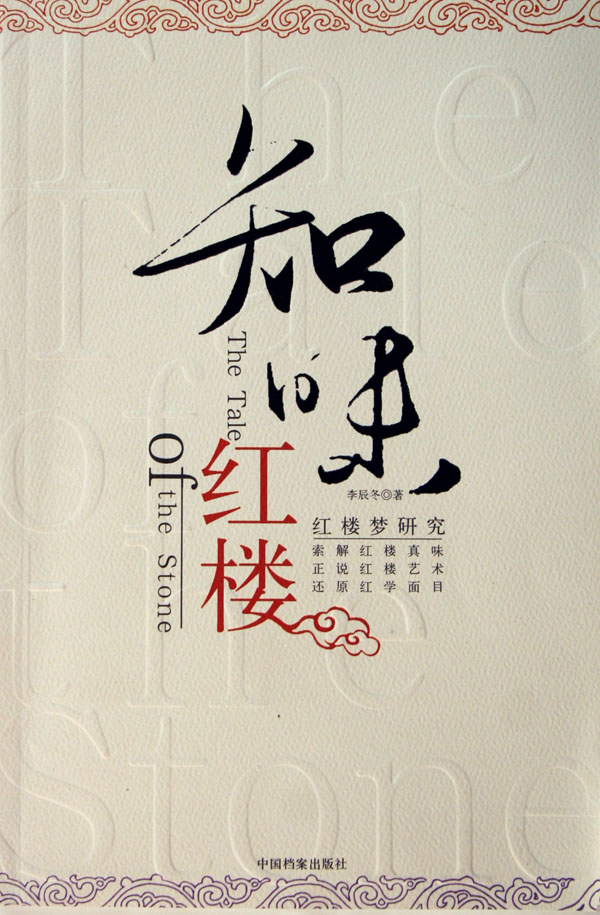 知味
红楼
The Tale
of the Stone
李辰冬◎著
红楼梦研究
索解红楼真味
正说红楼艺术
还原红学面目
中国档案出版社
The
Tale
of
the
Stone